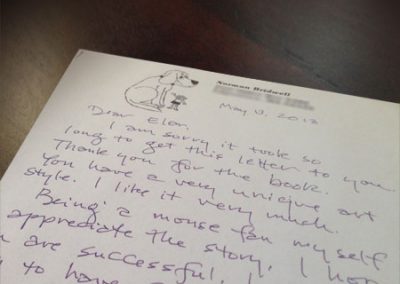 Norman Bridwell
May 10, 2013
Dear Elon,
I am sorry it took so
long to get this letter to you.
Thank you for the book.
You have a very unique art
style. I like it very much.
Being a mouse fan myself
appreciate the story. I hope
are successful, I
to have